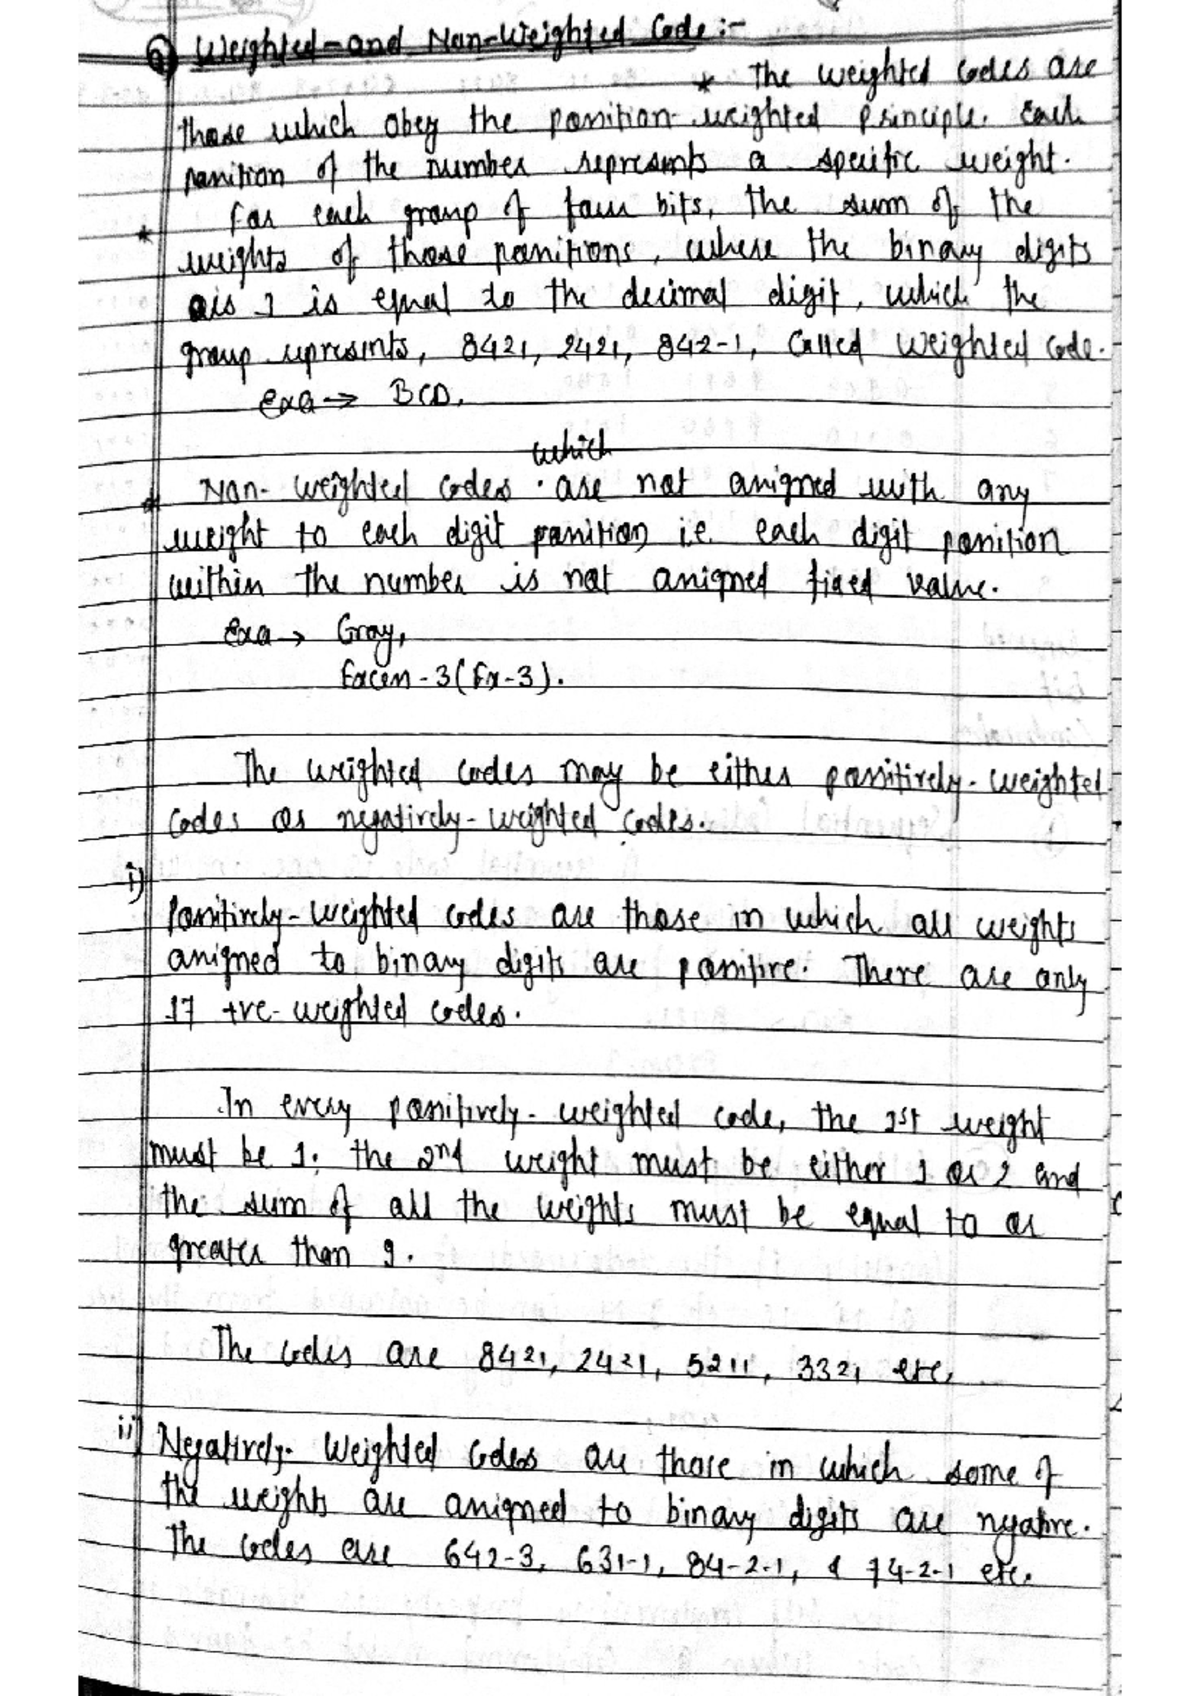 a) Weighted-and Non-Weighted Code:-
* The weighted codes are
those which obey the position weighted principle. Each
position of the number represents a specific weight.
* For each group of four bits, the sum of the
weights of those positions, where the binary digits
is 1 is equal to the decimal digit, which the
group represents, 8421, 2421, 842-1, Called Weighted Code.
Exa → BCD.
which
* Non- weighted codes are not assigned with any
weight to each digit position i.e. each digit position
within the number is not assigned fixed value.
Exa → Gray,
Excess - 3 (Ex-3).
The weighted codes may be either positively-weighted
codes or negatively-weighted codes.
i)
Positively-weighted codes are those in which all weights
assigned to binary digits are positive. There are only
17 +ve- weighted codes.
In every positively- weighted code, the 1st weight
must be 1. the 2nd weight must be either 1 or 2 and
the sum of all the weights must be equal to or
greater than 9.
The codes are 8421, 2421, 5211, 3321 etc.
ii) Negatively- Weighted Codes are those in which some of
the weights are assigned to binary digits are negative.
The codes are 642-3, 631-1, 84-2-1, & 74-2-1 etc.